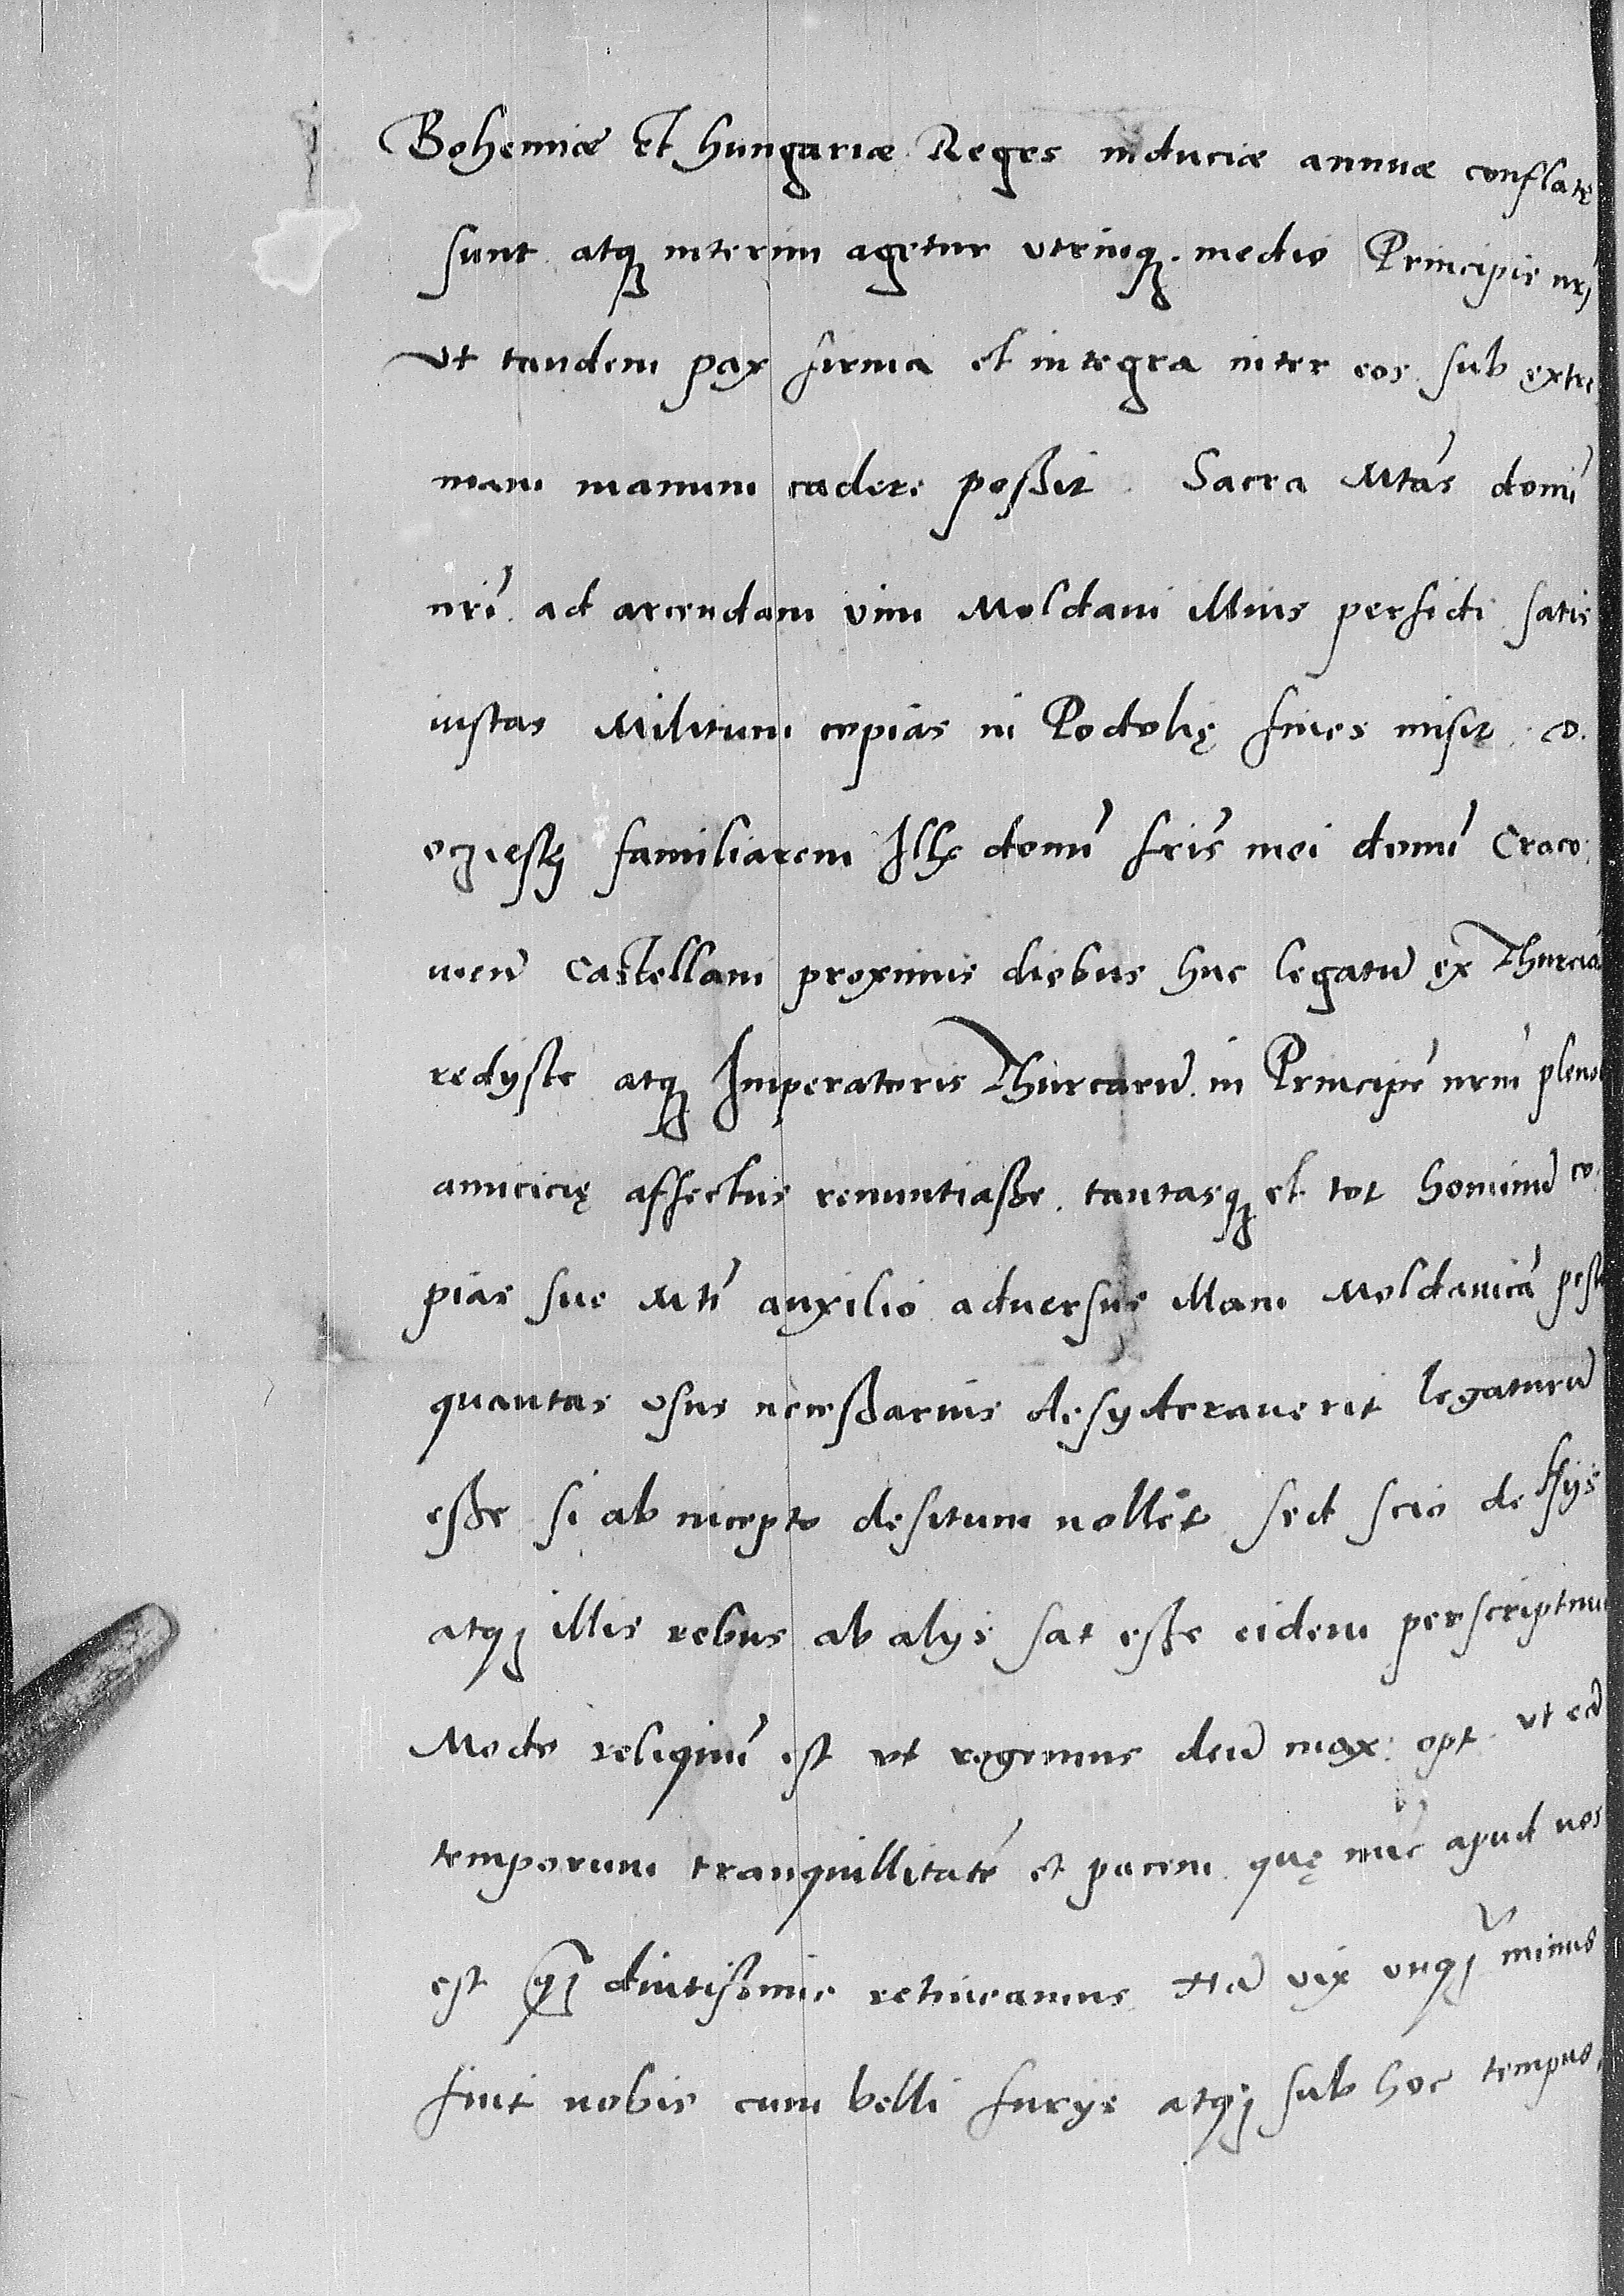 Bohemiæ et Hungariæ Reges induciæ annuæ conflatę
sunt. atq; interim agetur vtrinq; medio Principis nrj
vt tandem pax firma et integra inter eos sub extre
mam manum cadere poßit. Sacra Mtas domi
nri. ad arcendam vim Moldaui illius perfidi satis
iustas Militum copias in Podolię fines misit. D.
familiarem Illꝫ domi fris mei domi Craco:
uien̄ Castellani proximis diebus huc legatū ex Thurcia
redysse atq; Imperatoris Thurcarū in Principē nrm̄ plenos
amicicię affectus renuntiaße. tantasq; et tot hominū co
pias sue Mti auxilio aduersus illam Moldauicā peste
quantas vsus neceßarius desyderauerit legaturū
eße si ab incepto desitum nollet. sed scio de hys
atq; illis rebus ab alys sat eße eidem perscriptum
Modo reliquū est vt rogemus deū max: opt. vt eā
temporum tranquillitatē et pacem quę nūc apud nos
est q̄ȝ diutißime retineamus. Nā vix vnq̄ȝ minus
fuit nobis cum belli furijs atq; sub hoc tempus.